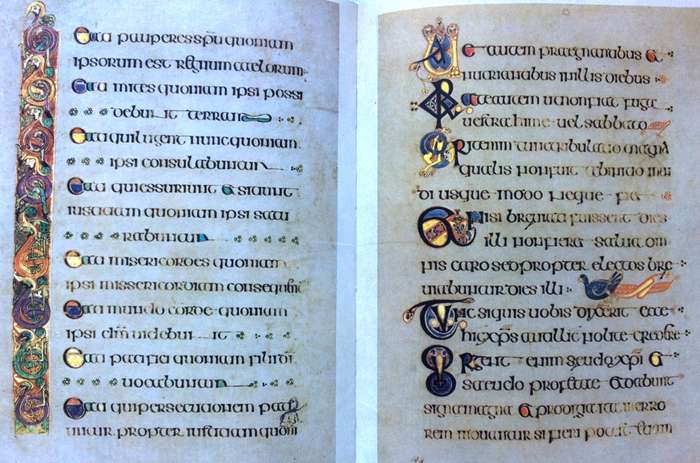 Beati pauperes spu quoniam
ipsorum est regnum caelorum
Beati mites quoniam ipsi possi
debunt terram
Beati qui lugunt nunc quoniam
ipsi consulabuntur
Beati qui essuriunt et sitiunt
iustitiam quoniam ipsi satu
rabuntur
Beati misericordes quoniam
ipsi missericordiam consequntur
Beati mundo corde quoniam
ipsi dm videbunt
Beati pacifici quoniam filii di
vocabuntur
Beati qui persecutionem pati
untur propter iustitiam quoni
Uae autem praegnantibus et
nutrientibus in illis diebus
Orate autem ut non fiat fuga
vestra hieme vel sabbato
Erit enim tunc tribulatio magna
qualis non fuit ab initio mun
di usque modo neque
Et nisi breviati fuissent dies
illi non fieret salva om
nis caro sed propter electos bre
viabuntur dies illi
Tunc si quis vobis dixerit ecce
hic xps aut illic nolite credere
Surgent enim seudo xpi et
seudo profetae et dabunt
signa magna et prodigia ita ut in erro
rem moveantur si fieri potest etiam